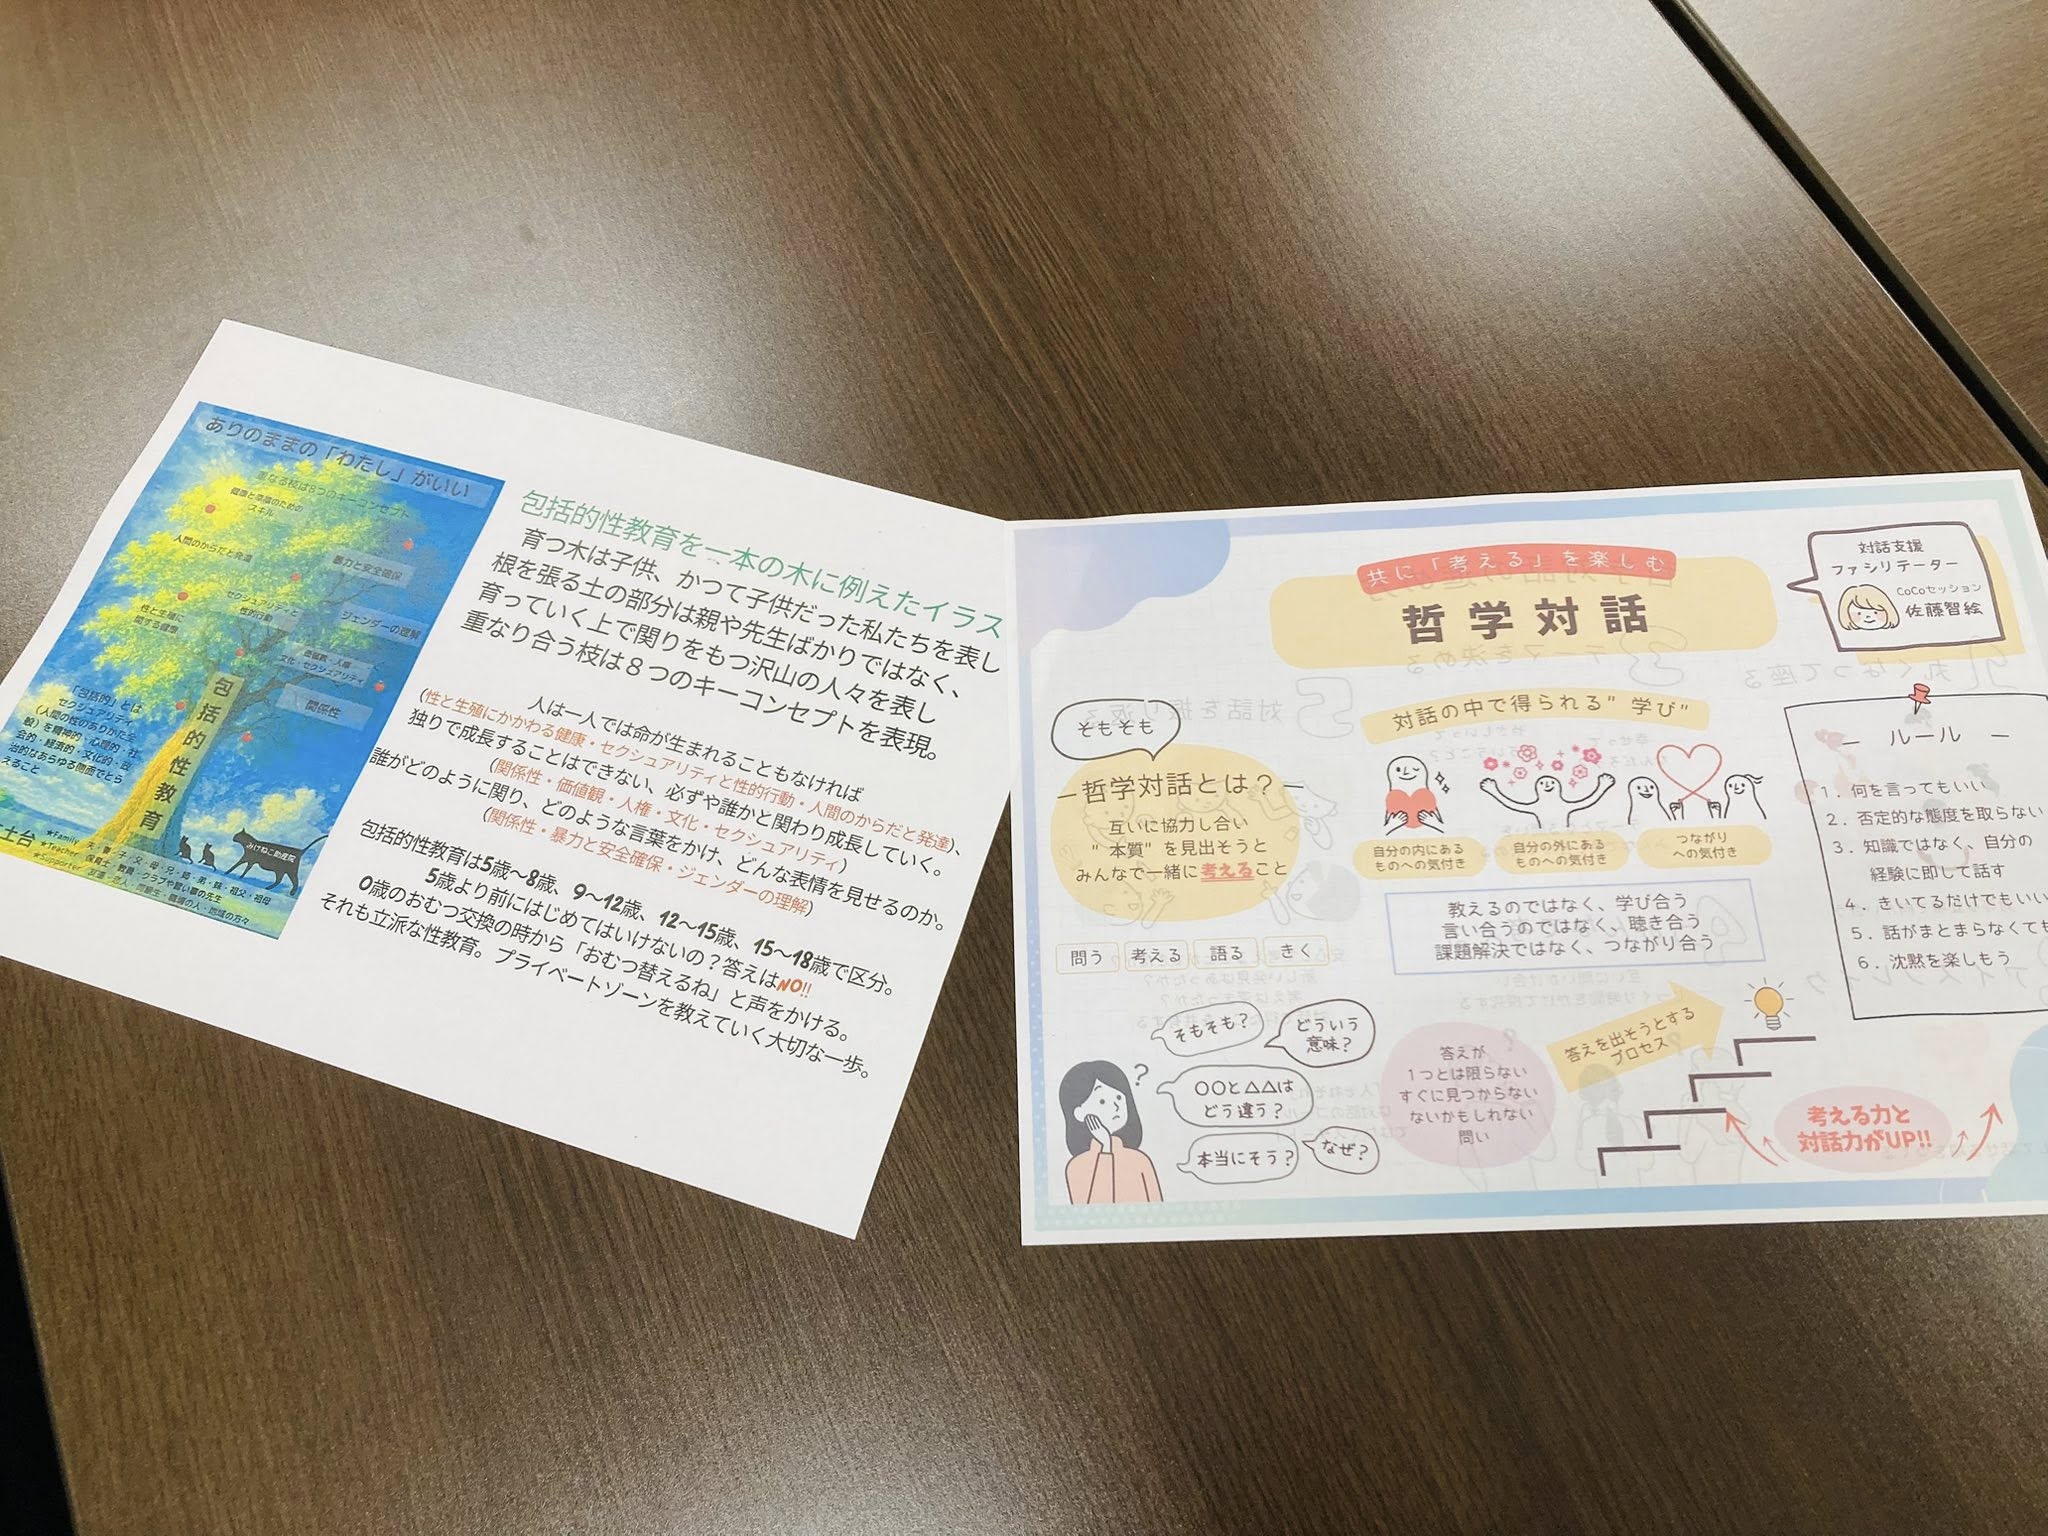 ありのままの「わたし」がいい
重なる枝は8つのキーコンセプト
健康と幸福のための
スキル
人間のからだと発達
暴力と安全確保
セクシュアリティと
性的行動
性と生殖に
関する健康
ジェンダーの理解
価値観・人権
文化・セクシュアリティ
関係性
包括的性教育
「包括的」とは
セクシュアリティ
(人間の性のありかた全
般)を精神的・心理的・社
会的・経済的・文化的・政
治的なあらゆる側面でとら
えること
みけねこ助産院
土台
★Family 夫・妻・子・父・母・兄・姉・弟・妹・祖父・祖母
★Teacher 保育士・教員・クラブや習い事の先生
★Supporter 友達・恋人・同級生・職場の人・地域の方々
包括的性教育を一本の木に例えたイラス
育つ木は子供、かつて子供だった私たちを表し
根を張る土の部分は親や先生ばかりではなく、
育っていく上で関りをもつ沢山の人々を表し
重なり合う枝は８つのキーコンセプトを表現。
人は一人では命が生まれることもなければ
(性と生殖にかかわる健康・セクシュアリティと性的行動・人間のからだと発達)、
独りで成長することはできない、必ずや誰かと関わり成長していく。
(関係性・価値観・人権・文化・セクシュアリティ)
誰がどのように関り、どのような言葉をかけ、どんな表情を見せるのか。
(関係性・暴力と安全確保・ジェンダーの理解)
包括的性教育は5歳～8歳、9～12歳、12～15歳、15～18歳で区分。
5歳より前にはじめてはいけないの？答えはNO!!
0歳のおむつ交換の時から「おむつ替えるね」と声をかける。
それも立派な性教育。プライベートゾーンを教えていく大切な一歩。
共に「考える」を楽しむ
哲学対話
対話支援
ファシリテーター
CoCoセッション
佐藤智絵
そもそも
哲学対話とは？
互いに協力し合い
"本質"を見出そうと
みんなで一緒に考えること
問う 考える 語る きく
対話の中で得られる"学び"
自分の内にある
ものへの気付き
自分の外にある
ものへの気付き
つながり
への気付き
教えるのではなく、学び合う
言い合うのではなく、聴き合う
課題解決ではなく、つながり合う
ルール
1．何を言ってもいい
2．否定的な態度を取らない
3．知識ではなく、自分の
経験に即して話す
4．きいてるだけでもいい
5．話がまとまらなくても
6．沈黙を楽しもう
？
そもそも？
どういう
意味？
〇〇と△△は
どう違う？
本当にそう？
なぜ？
答えが
１つとは限らない
すぐに見つからない
ないかもしれない
問い
答えを出そうとする
プロセス
考える力と
対話力がUP!!